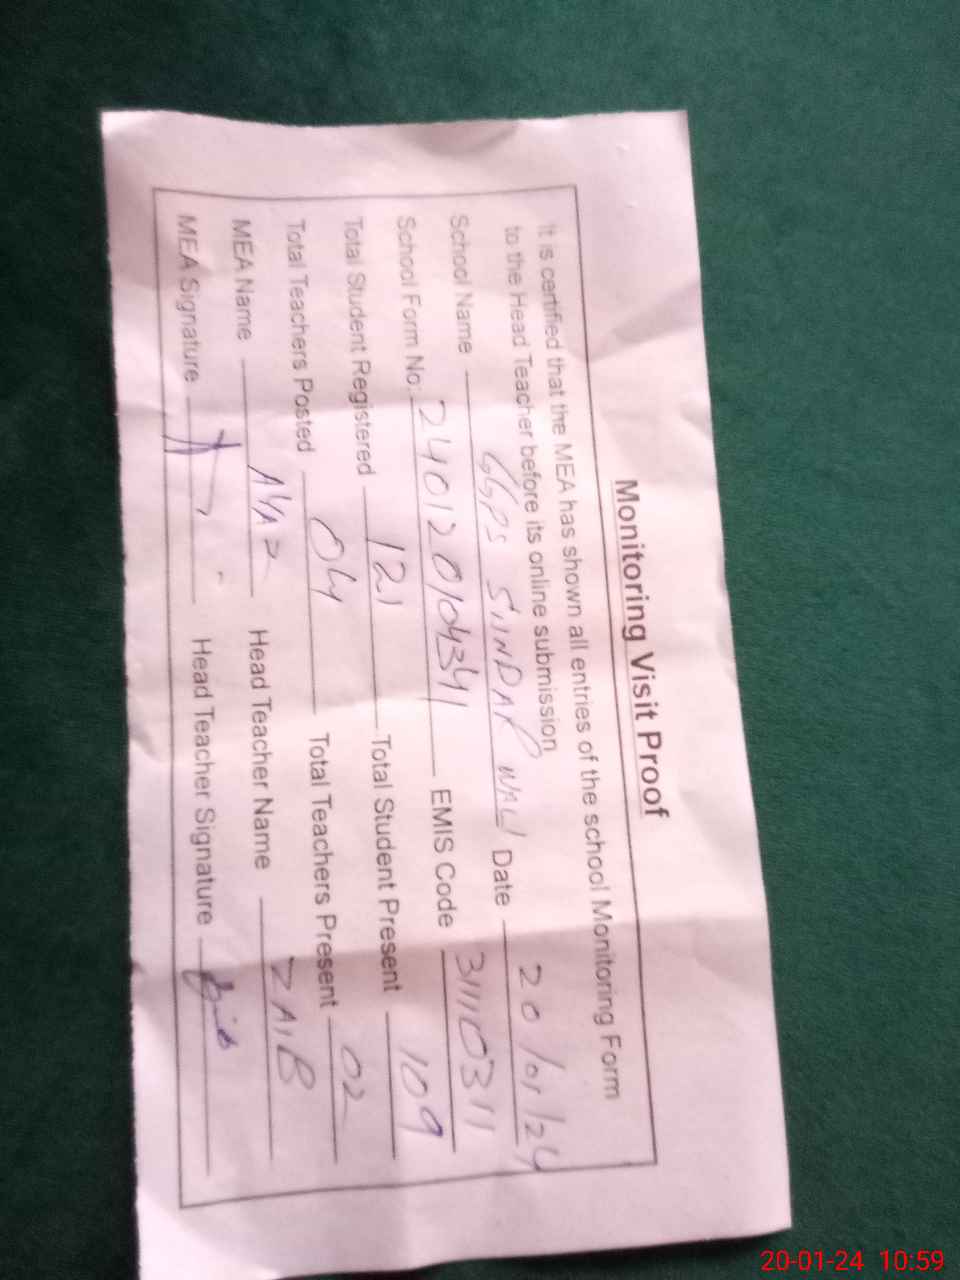 Monitoring Visit Proof
It is certified that the MEA has shown all entries of the school Monitoring Form
to the Head Teacher before its online submission
School Name GGPS SUNDAR WALI Date 20/01/24
School Form No: 240120104341 EMIS Code 31110311
Total Student Registered 121 Total Student Present 109
Total Teachers Posted 04 Total Teachers Present 02
MEA Name AYAZ Head Teacher Name ZAIB
MEA Signature Head Teacher Signature
20-01-24 10:59